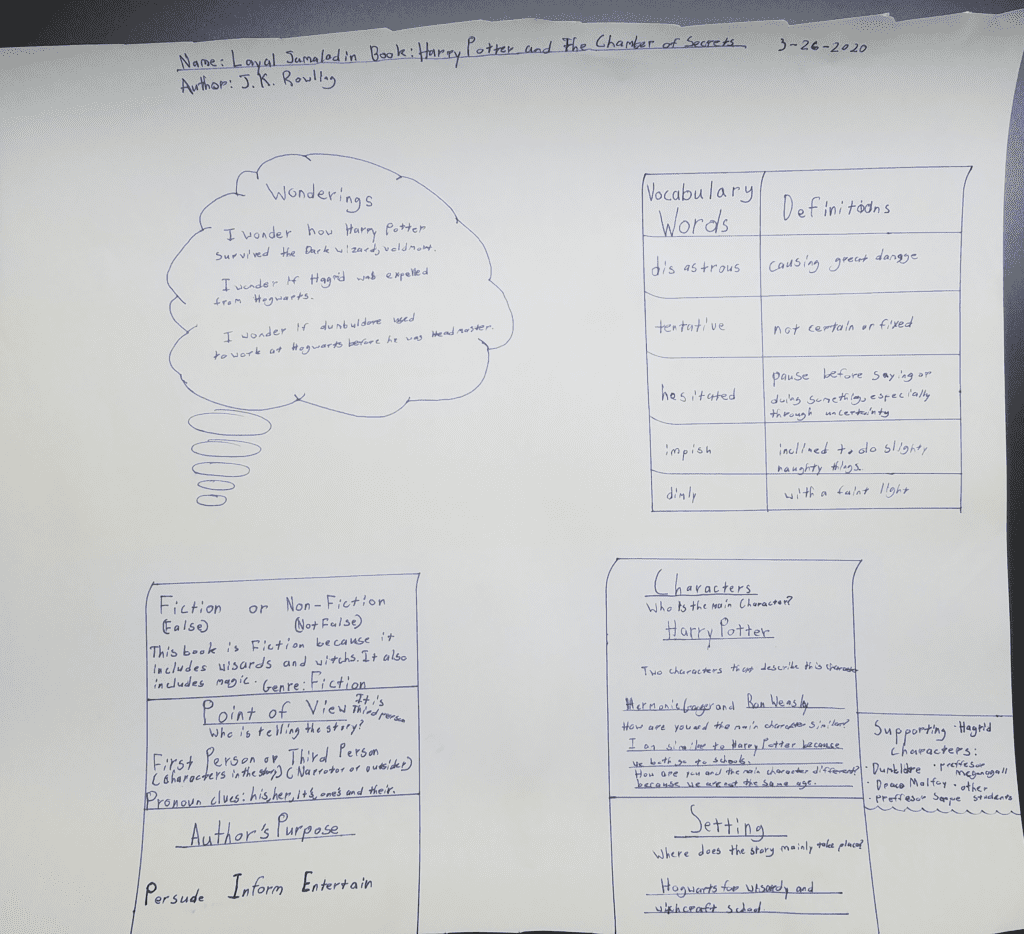 Name: Layal Jamaladin Book: Harry Potter and The Chamber of Secrets 3-26-2020
Author: J.K. Rowling
Wonderings
I wonder how Harry Potter
survived the Dark wizard, voldmort.
I wonder if Hagrid was expelled
from Hogwarts.
I wonder if dunbuldore used
to work at Hogwarts before he was Headmaster.
Vocabulary Words
Definitions
disastrous
causing great dangge
tentative
not certain or fixed
hesitated
pause before saying or
doing something, especially
through uncertainty
impish
inclined to do slighty
naughty things.
dimly
with a faint light
Fiction or Non-Fiction
(False) (Not False)
This book is Fiction because it
includes wisards and witchs. It also
includes magic. Genre: Fiction
Point of View It is Third person
Who is telling the story?
First Person or Third Person
(Characters in the story) (Narrator or outsider)
Pronoun clues: his, her, its, one's and their.
Author's Purpose
Persude Inform Entertain
Characters
Who Is the main Character?
Harry Potter
Two characters that describe this character
Hermonie Granger and Ron Weasly
How are you and the main character similar?
I am similar to Harry Potter because
we both go to school.
How are you and the main character different?
because we are not the same age.
Supporting Characters:
· Hagrid
· Dunbldore
· preffesor Megonagall
· Draco Malfoy
· other students
· preffesor Snape
Setting
Where does the story mainly take place?
Hogwarts for wisardy and
witchcraft school.